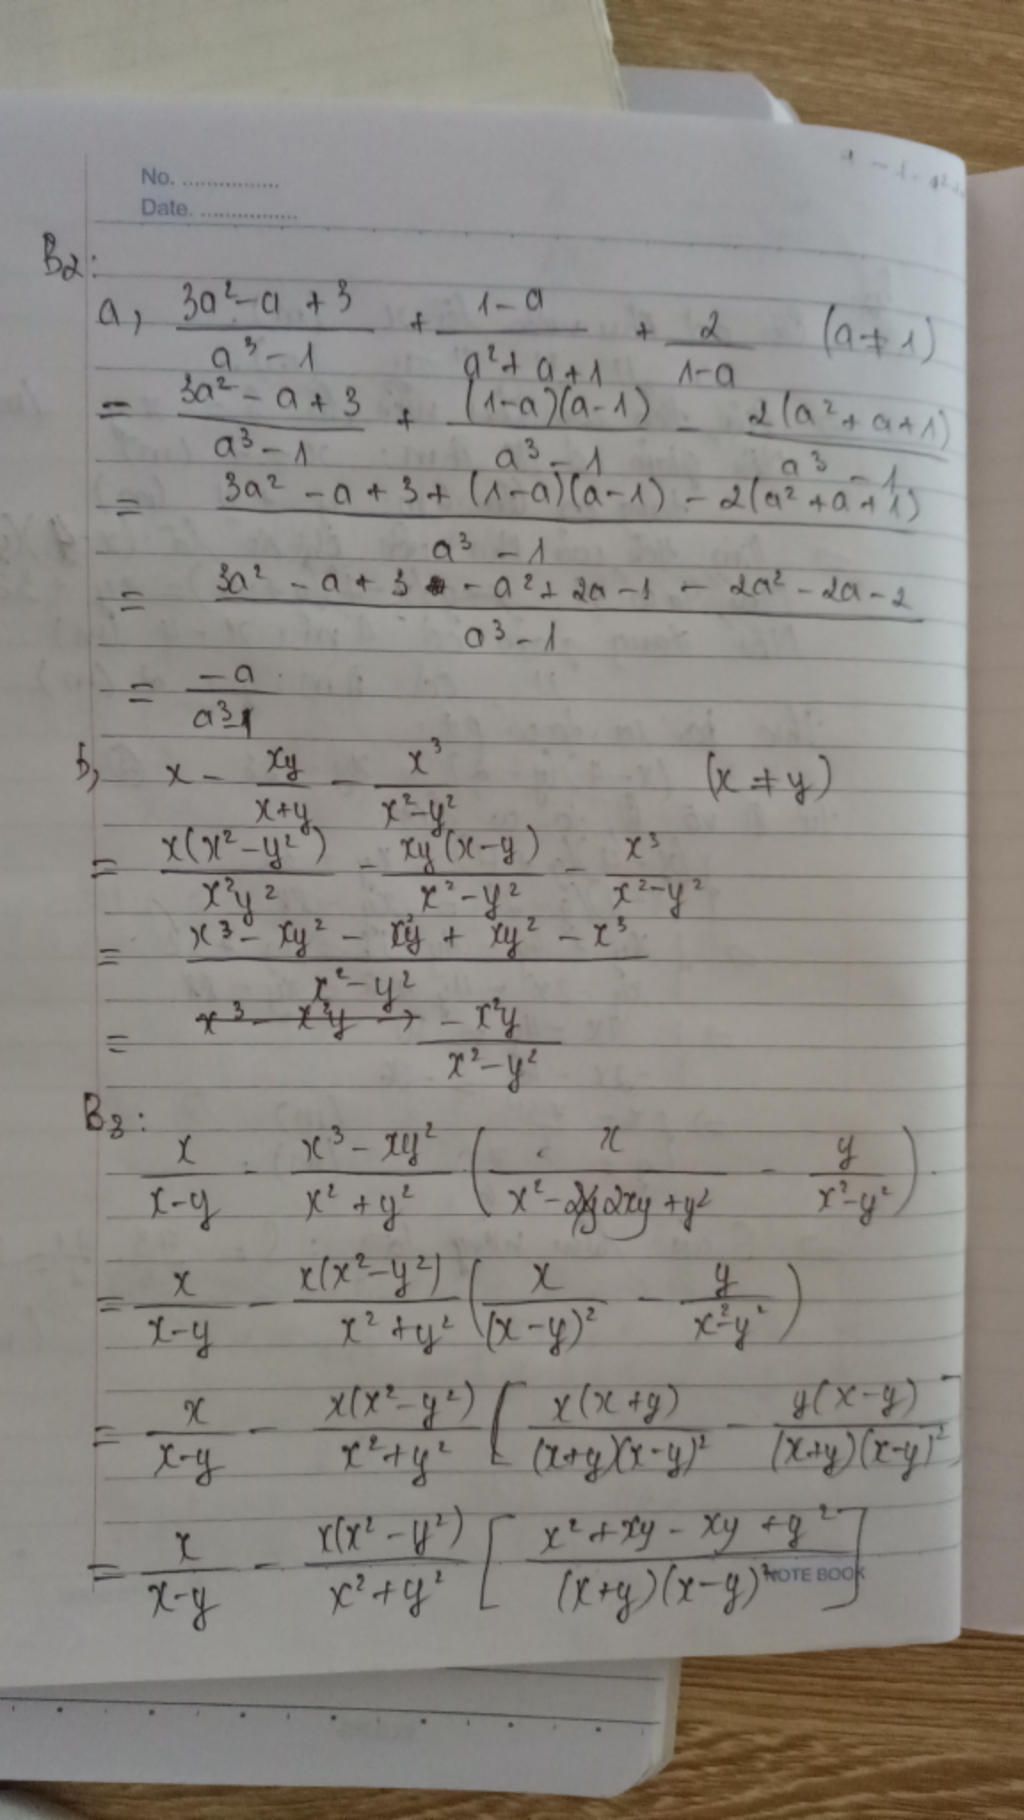 No. ................
Date. ................
B2:
a, (3a² - a + 3)/(a³ - 1) + (1 - a)/(a² + a + 1) + 2/(1 - a) (a ≠ 1)
= (3a² - a + 3)/(a³ - 1) + ((1-a)(a-1))/(a³ - 1) - (2(a² + a + 1))/(a³ - 1)
= (3a² - a + 3 + (1-a)(a-1) - 2(a² + a + 1))/(a³ - 1)
= (3a² - a + 3 - a² + 2a - 1 - 2a² - 2a - 2)/(a³ - 1)
= (-a)/(a³-1)
b, x - xy/(x+y) - x³/(x²-y²) (x ≠ y)
= (x(x²-y²))/(x²y²) - (xy(x-y))/(x²-y²) - x³/(x²-y²)
= (x³ - xy² - x²y + xy² - x³)/(x²-y²)
= (-x²y)/(x²-y²)
B3:
x/(x-y) - (x³ - xy²)/(x² + y²) (x/(x² - 2xy + y²) - y/(x²-y²))
= x/(x-y) - (x(x²-y²))/(x² + y²) (x/(x-y)² - y/(x²-y²))
= x/(x-y) - (x(x²-y²))/(x²+y²) [(x(x+y))/((x+y)(x-y)²) - (y(x-y))/((x+y)(x-y)²)]
= x/(x-y) - (x(x²-y²))/(x²+y²) [(x² + xy - xy + y²)/((x+y)(x-y)²)]
NOTE BOOK